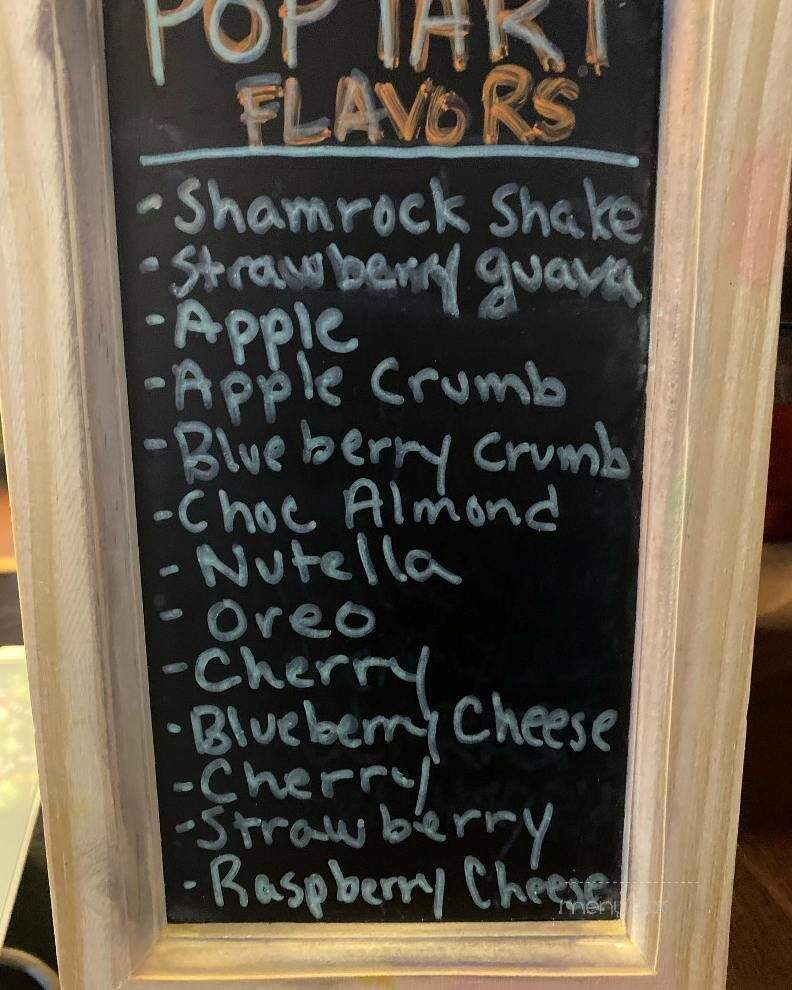 POP TART
FLAVORS
- Shamrock Shake
- Strawberry guava
- Apple
- Apple Crumb
- Blueberry Crumb
- Choc Almond
- Nutella
- Oreo
- Cherry
- Blueberry Cheese
- Cherry
- Strawberry
- Raspberry Cheese